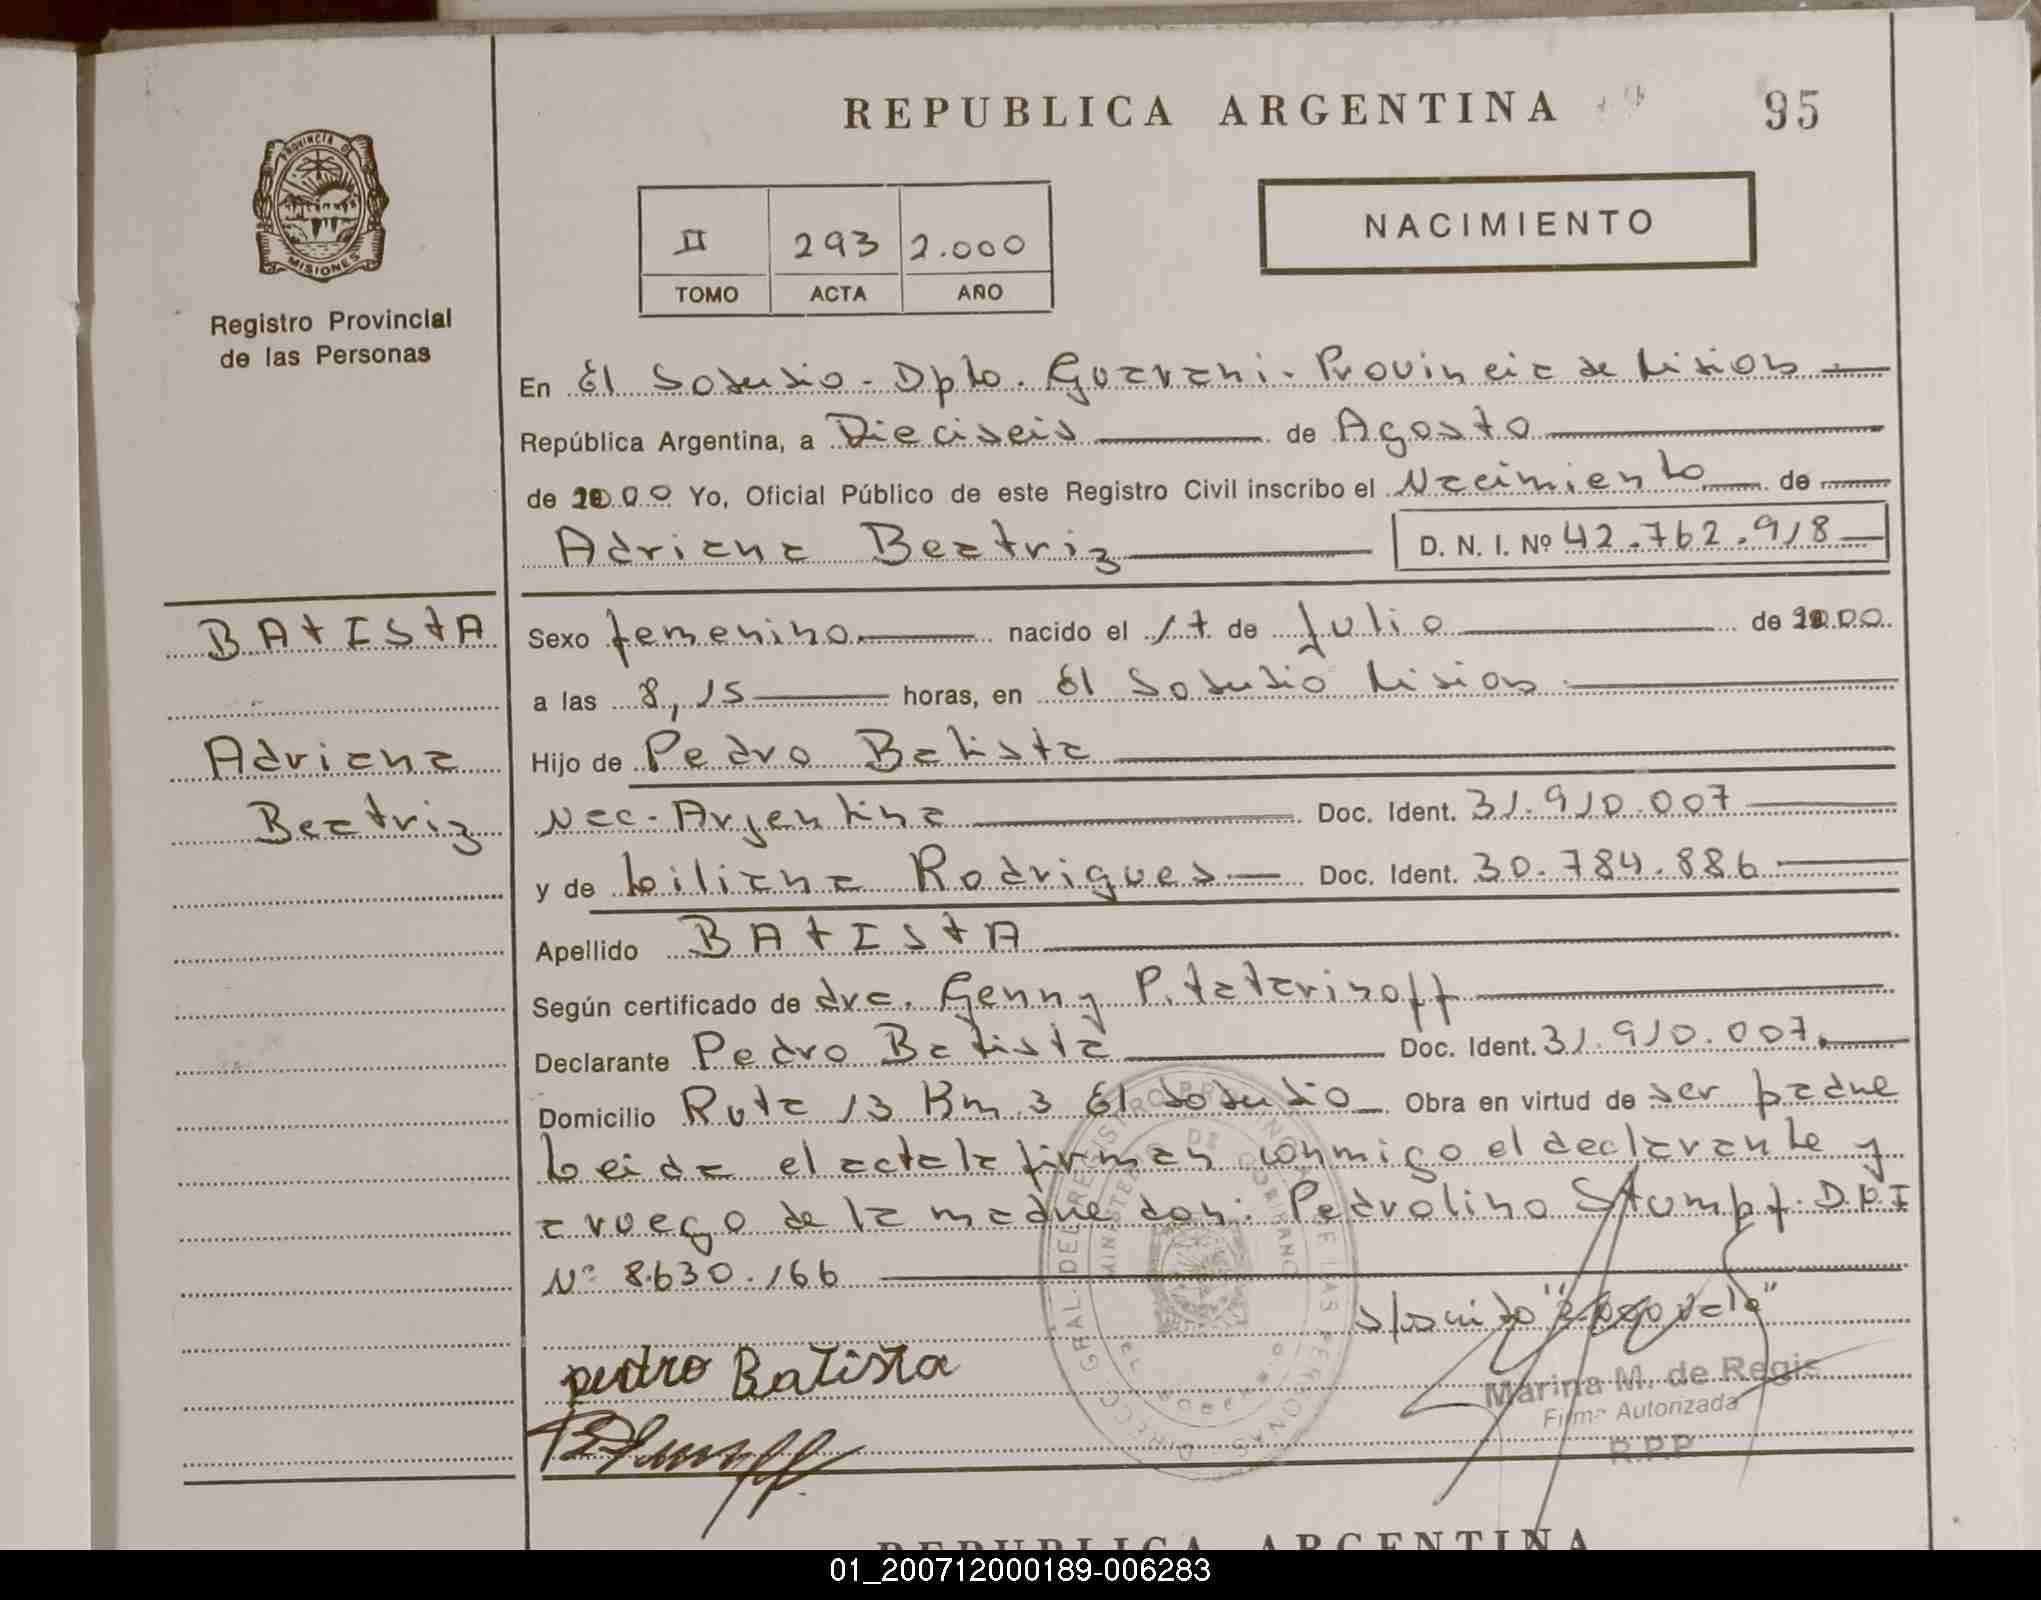 REPUBLICA ARGENTINA
95
PROVINCIA DE
MISIONES
Registro Provincial
de las Personas
II 293 2.000
TOMO ACTA AÑO
NACIMIENTO
En El Soberbio - Dpto. Guarani - Provincia de Misiones
República Argentina, a Dieciseis de Agosto
de 2000 Yo, Oficial Público de este Registro Civil inscribo el Nacimiento de
Adriana Beatriz D. N. I. Nº 42.762.918
BATISTA
Adriana
Beatriz
Sexo femenino nacido el 17 de Julio de 2000
a las 8,15 horas, en El Soberbio Misiones
Hijo de Pedro Batista
Nac. Argentina Doc. Ident. 31.910.007
y de Liliana Rodrigues Doc. Ident. 30.784.886
Apellido BATISTA
Según certificado de dra. Genny P. tatarinoff
Declarante Pedro Batista Doc. Ident. 31.910.007
Domicilio Ruta 13 Km 3 El Soberbio Obra en virtud de ser padre
Leida el acta la firman conmigo el declarante y
a ruego de la madre don: Pedrolino Stumpf. D.N.I
Nº 8.630.166
pedro Batista
Marina M. de Regis
Firma Autorizada
R.P.P
REPUBLICA ARGENTINA
01_200712000189-006283